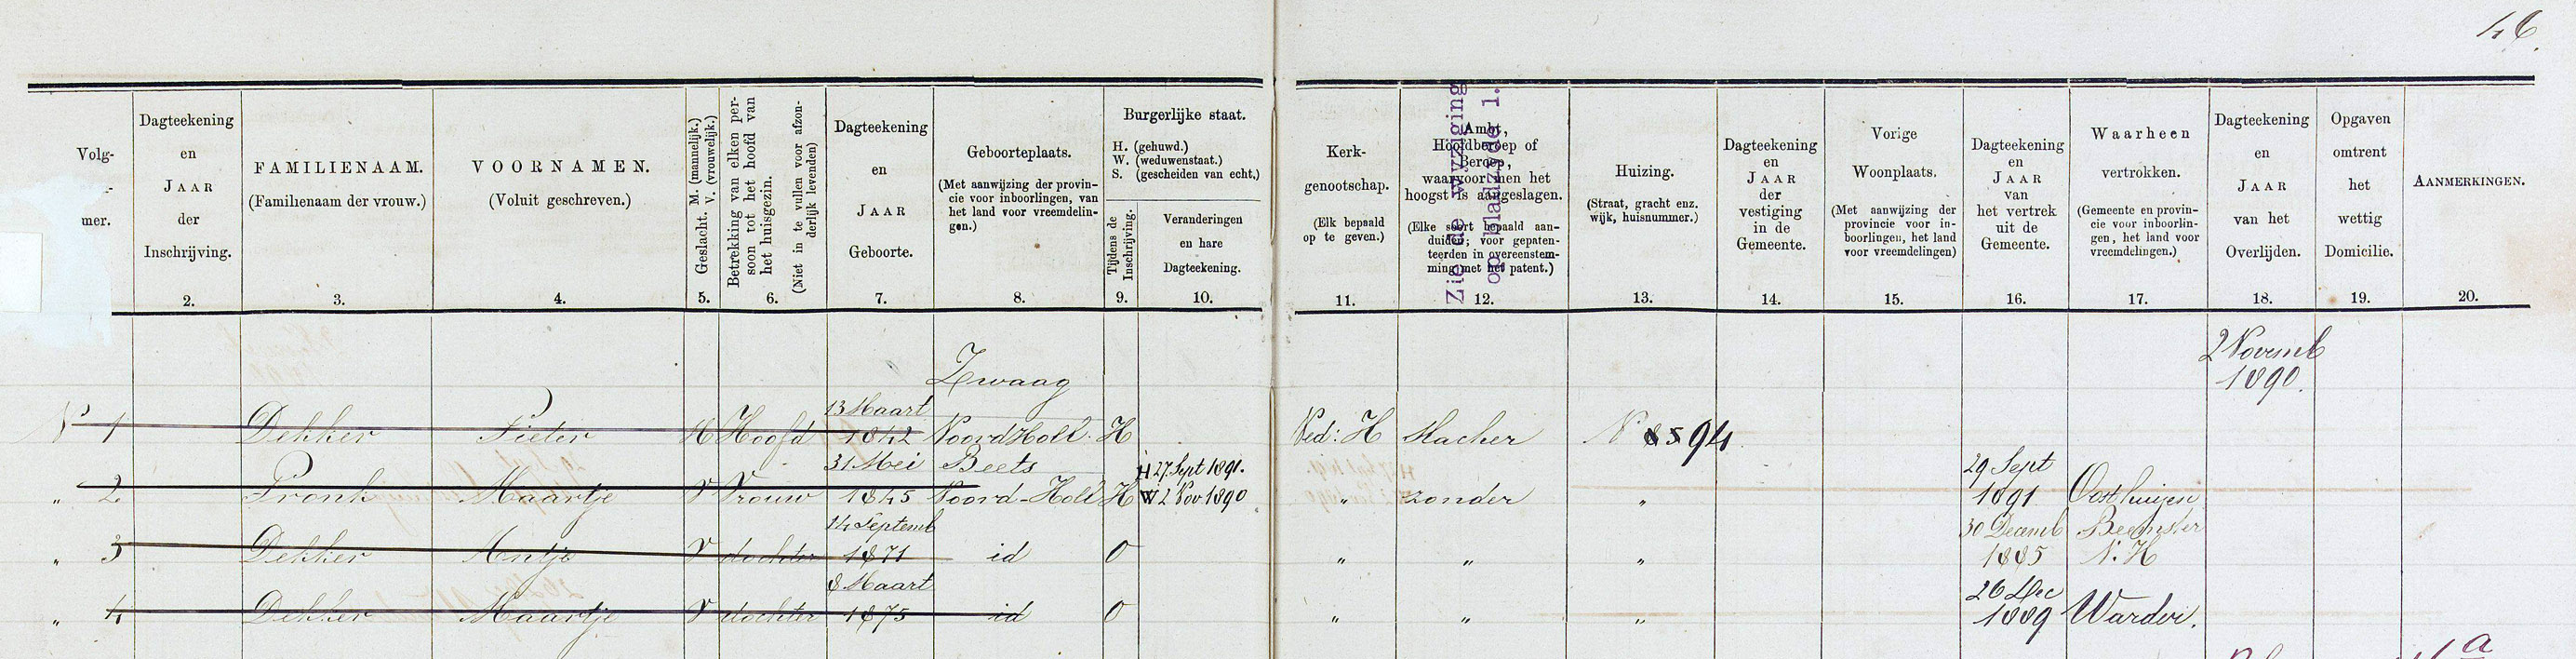 46.
Volg-
mer.
Dagteekening
en
JAAR
der
Inschrijving.
2.
FAMILIENAAM.
(Familienaam der vrouw.)
3.
VOORNAMEN.
(Voluit geschreven.)
4.
Geslacht. M. (mannelijk.)
V. (vrouwelijk.)
5.
Betrekking van elken per-
soon tot het hoofd van
het huisgezin.
(Niet in te vullen voor afzon-
derlijk levenden)
6.
Dagteekening
en
JAAR
der
Geboorte.
7.
Geboorteplaats.
(Met aanwijzing der provin-
cie voor inboorlingen, van
het land voor vreemdelin-
gen.)
8.
Burgerlijke staat.
H. (gehuwd.)
W. (weduwenstaat.)
S. (gescheiden van echt.)
Tijdens de
Inschrijving.
9.
Veranderingen
en hare
Dagteekening.
10.
Kerk-
genootschap.
(Elk bepaald
op te geven.)
11.
Ambt,
Hoofdberoep of
Beroep,
waarvoor men het
hoogst is aangeslagen.
(Elke soort bepaald aan-
duiden; voor gepaten-
teerden in overeenstem-
ming met het patent.)
12.
Zie de wyziging
op bladzyde 1.
Huizing.
(Straat, gracht enz.
wijk, huisnummer.)
13.
Dagteekening
en
JAAR
der
vestiging
in de
Gemeente.
14.
Vorige
Woonplaats.
(Met aanwijzing der
provincie voor in-
boorlingen, het land
voor vreemdelingen)
15.
Dagteekening
en
JAAR
van
het vertrek
uit de
Gemeente.
16.
Waarheen
vertrokken.
(Gemeente en provin-
cie voor inboorlin-
gen, het land voor
vreemdelingen.)
17.
Dagteekening
en
JAAR
van het
Overlijden.
18.
Opgaven
omtrent
het
wettig
Domicilie.
19.
AANMERKINGEN.
20.
Zwaag 2 Novemb
13 Maart 1890.
N 1 Dekker Pieter M Hoofd 1842 Noord Holl. H Ned: H Slacher N 85 94
31 Mei Beets H 27 Sept 1891. 29 Sept
" 2 Pronk Maartje V Vrouw 1845 Noord-Holl H W 2 Nov 1890 " zonder " 1891 Oosthuizen
14 Septemb 30 Decemb Beemster
" 3 Dekker Antje V dochter 1871 id O " " " 1885 N. H
8 Maart 26 Dec
" 4 Dekker Maartje V dochter 1875 id O " " " 1889 Warder.